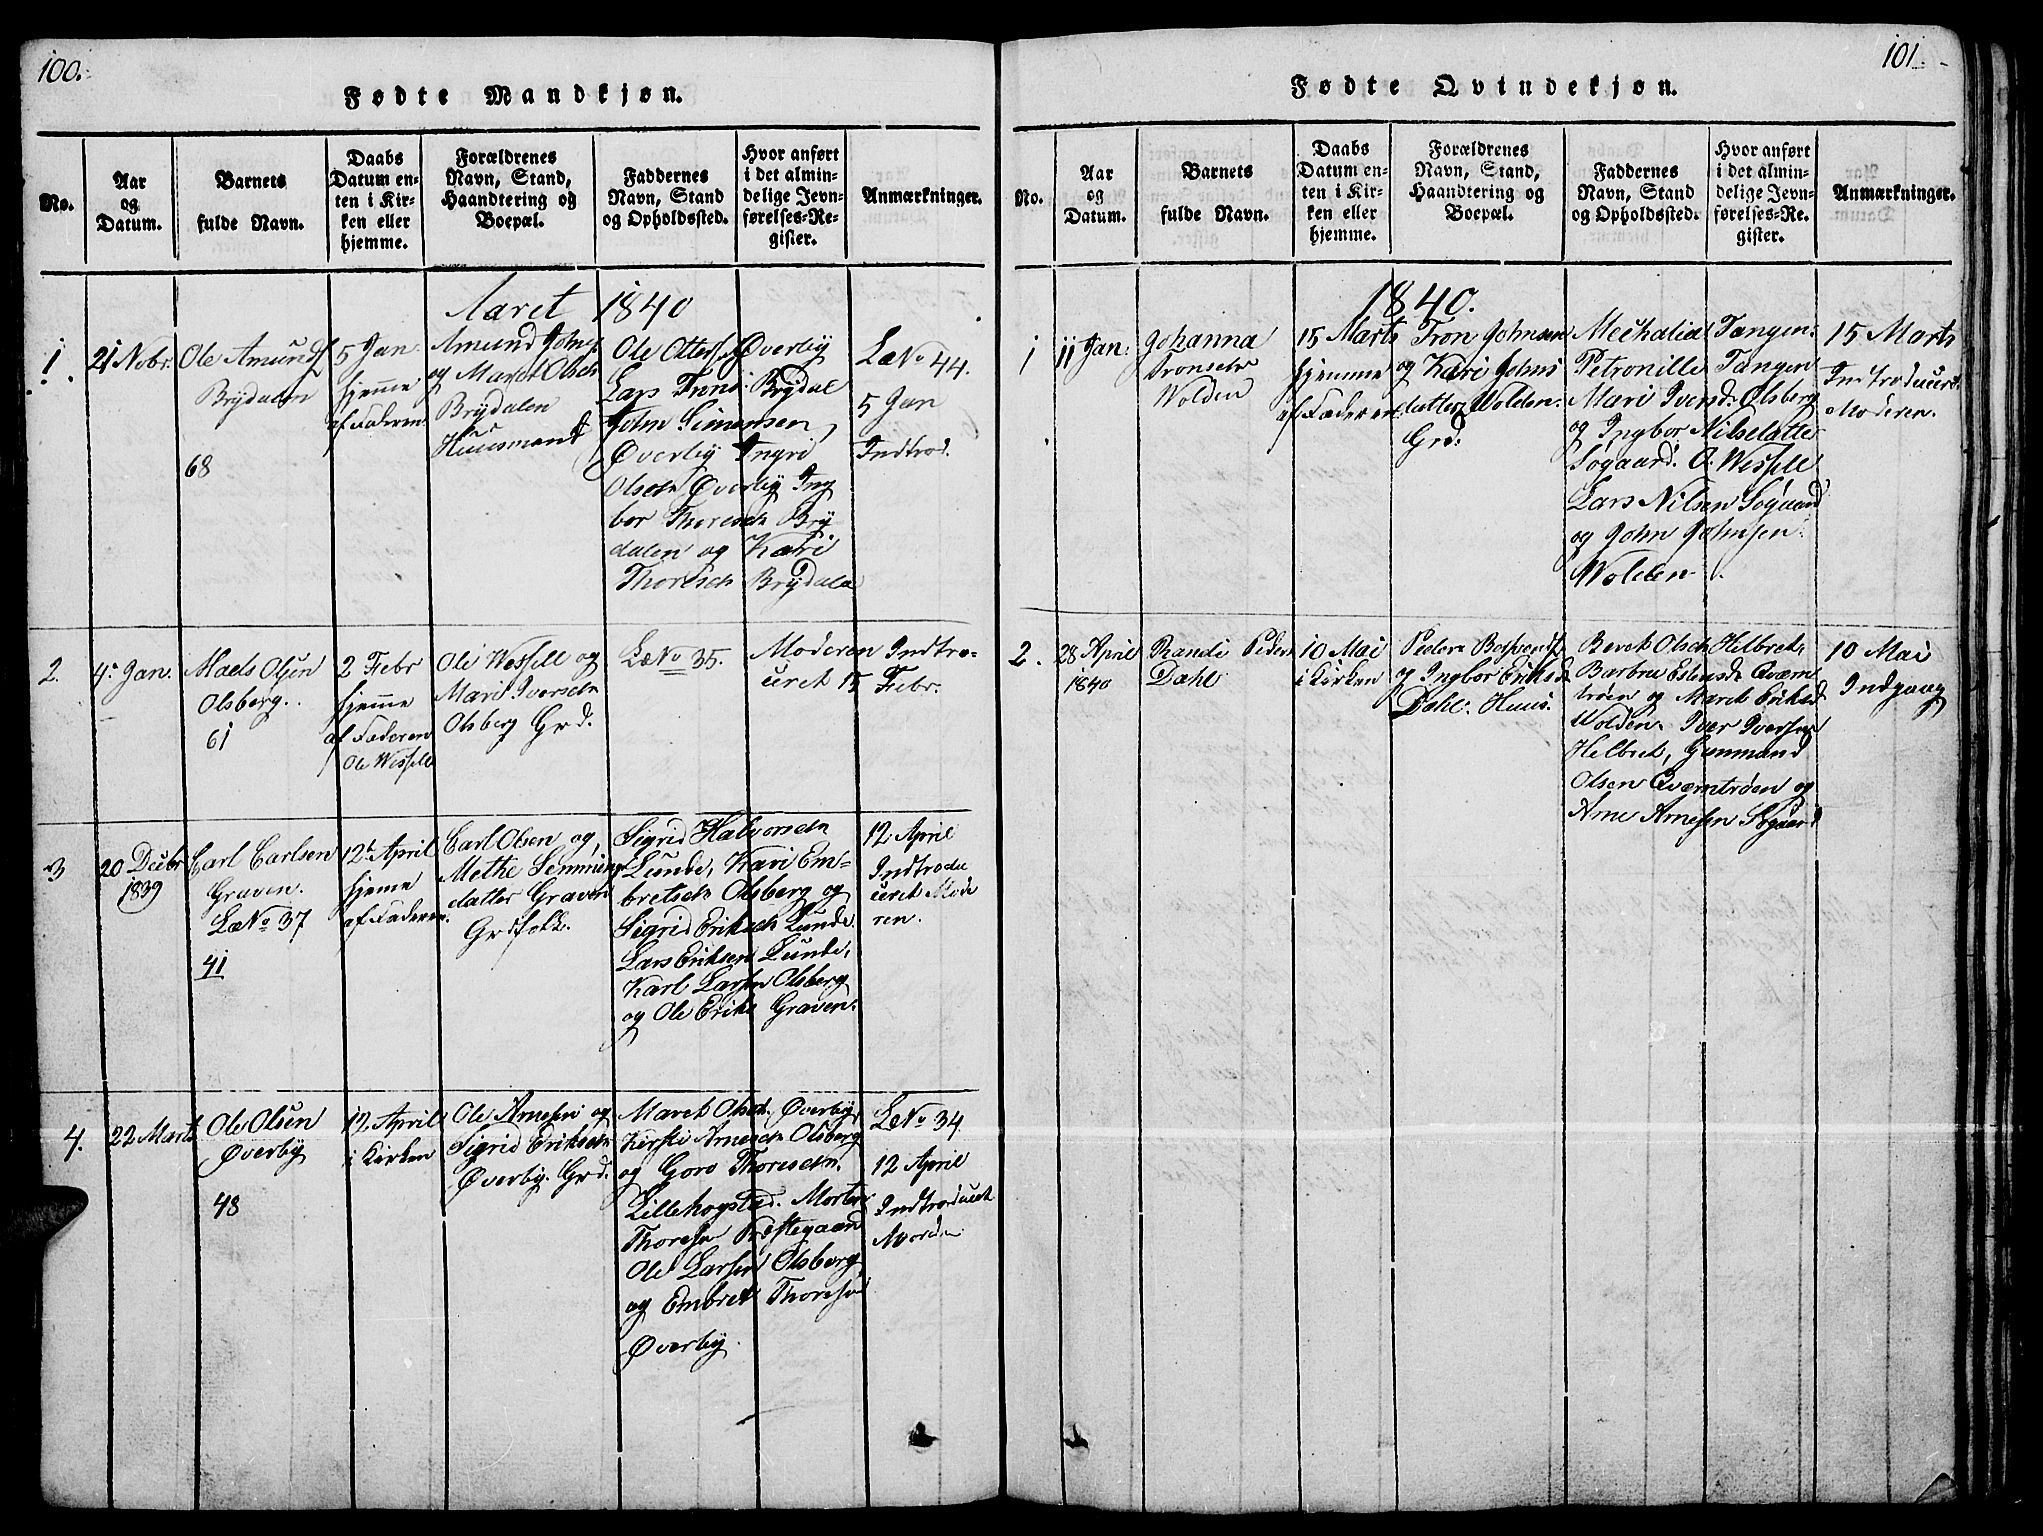 100.
Fødte Mandkjøn.
No.
Aar
og
Datum.
Barnets
fulde Navn.
Daabs
Datum en-
ten i Kir-
ken eller
hjemme.
Forældrenes
Navn, Stand,
Haandtering og
Boepæl.
Faddernes
Navn, Stand
og Opholdssted.
Hvor anført
i det almin-
delige Jevn-
førelses-Re-
gister.
Anmærkninger.
Aaret 1840
1.
21 Nobr.
Ole Amunds
Brydalen
68
5 Jan.
hjemme
af Faderen
Amund Johns
og Maret Olsdt
Brydalen
Huusmand
Ole Otters. Øverby
Lars Trons. Brydal
John Simensen,
Øverby Ingri
Olsdtr Øverby Ing
bor Thoresdtr Bry
dalen og Kari
Thoresdtr Brydale
Læ No 44.
5 Jan
Indtrod.
2.
4. Jan.
Mads Olsen
Olsberg.
61
2 Febr
hjemme
af Faderen
Ole Wessele
Ole Wessele og
Marit Iversdtr
Olsberg Grd.
Læ No 35.
Moderen Indtro-
ceret 15 Febr.
3
20 Decbr
1839
Carl Carlsen
Graven.
Læ No 37
41
12t April
hjeme
af Faderen.
Carl Olsen og,
Methe Semmings
datter Graven
Grdfolk.
Sigrid Halvorsdtr
Lunde, Kari Em-
bretsdtr Olsberg og
Sigrid Eriksdtr Lunde
Lars Eriksen Lunde,
Karl Larsen Olsberg
og Ole Eriks Graven.
12 April
Indtrodu
ceret Mode
ren.
4.
22 Marts
Ole Olsen
Øverby
48
12 April
i Kirken
Ole Arnesen og
Sigrid Eriksdtr
Øverby. Grd.
Maret Olsdt. Øverby,
Kersti Arnesdtr Olsberg
og Goro Thoresdtr.
Lillehogstad. Morten
Thoresen Prestegaard
Ole Larsen Olsberg
og Embret Thoresen
Øverby.
Læ No 34
12 April
Indtroduceret
Moderen
101.
Fødte Qvindekjøn.
No.
Aar
og
Datum.
Barnets
fulde Navn.
Daabs
Datum en-
ten i Kir-
ken eller
hjemme.
Forældrenes
Navn, Stand,
Haandtering og
Boepæl.
Faddernes
Navn, Stand
og Opholdssted.
Hvor anført
i det almin-
delige Jevn-
førelses-Re-
gister.
Anmærkninger.
1840.
1
11 Jan:
Johanna
Tronsdtr
Wolden
15 Marts
hjemme
af Faderen
Tron Johnsen
og Kari Johns
datter Wolden.
Grd:
Mechalia Tangen.
Petronille Tangen
Mari Iversd: Olsberg
og Ingbor Nilsdatter
Søgaard. O: Wessele
Lars Nilsen Søgaard
og John Johnsen
Wolden.
15 Marts
Indtroducert
Moderen.
2.
28 April
1840
Randi Peders
Dahl
10 Mai
i Kirken
og Ingbor Eriksd
Dahl. Huus.
Beret Olsdtr Helbret,
Barbro Estensd: Qværn
trøen og Maret Eriksd
Wolden. Iver Iversen
Helbret, Gunmand
Olsen Qværntrøen og
Arne Arnesen Søgaard
10 Mai
Indgang